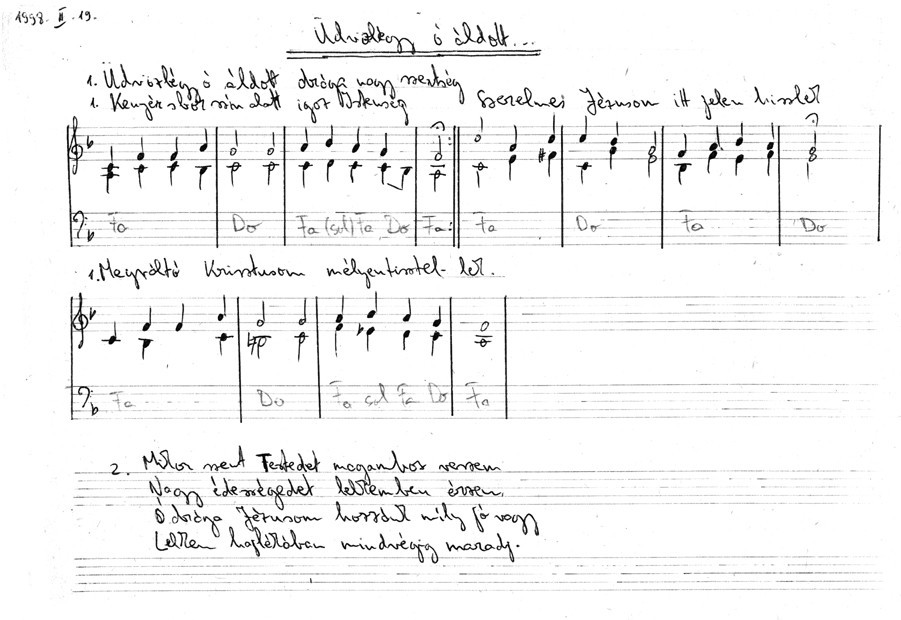 1998. II. 19.
Üdvözlégy ó áldott...
1. Üdvözlégy ó áldott drága nagy szentség
1. Kenyér s bor szín alatt igaz Istenség
Szerelmes Jézusom itt jelen hiszlek
Fa Do Fa (sol) Fa Do Fa Fa Do Fa Do
1. Megváltó Krisztusom mélyen tisztel-lek.
Fa Do Fa sol Fa Do Fa
2. Mikor szent Testedet magamhoz veszem
Nagy édességedet lelkemben érzem,
Ó drága Jézusom hozzám mily jó vagy
Lelkem hajlékában mindvégig maradj.